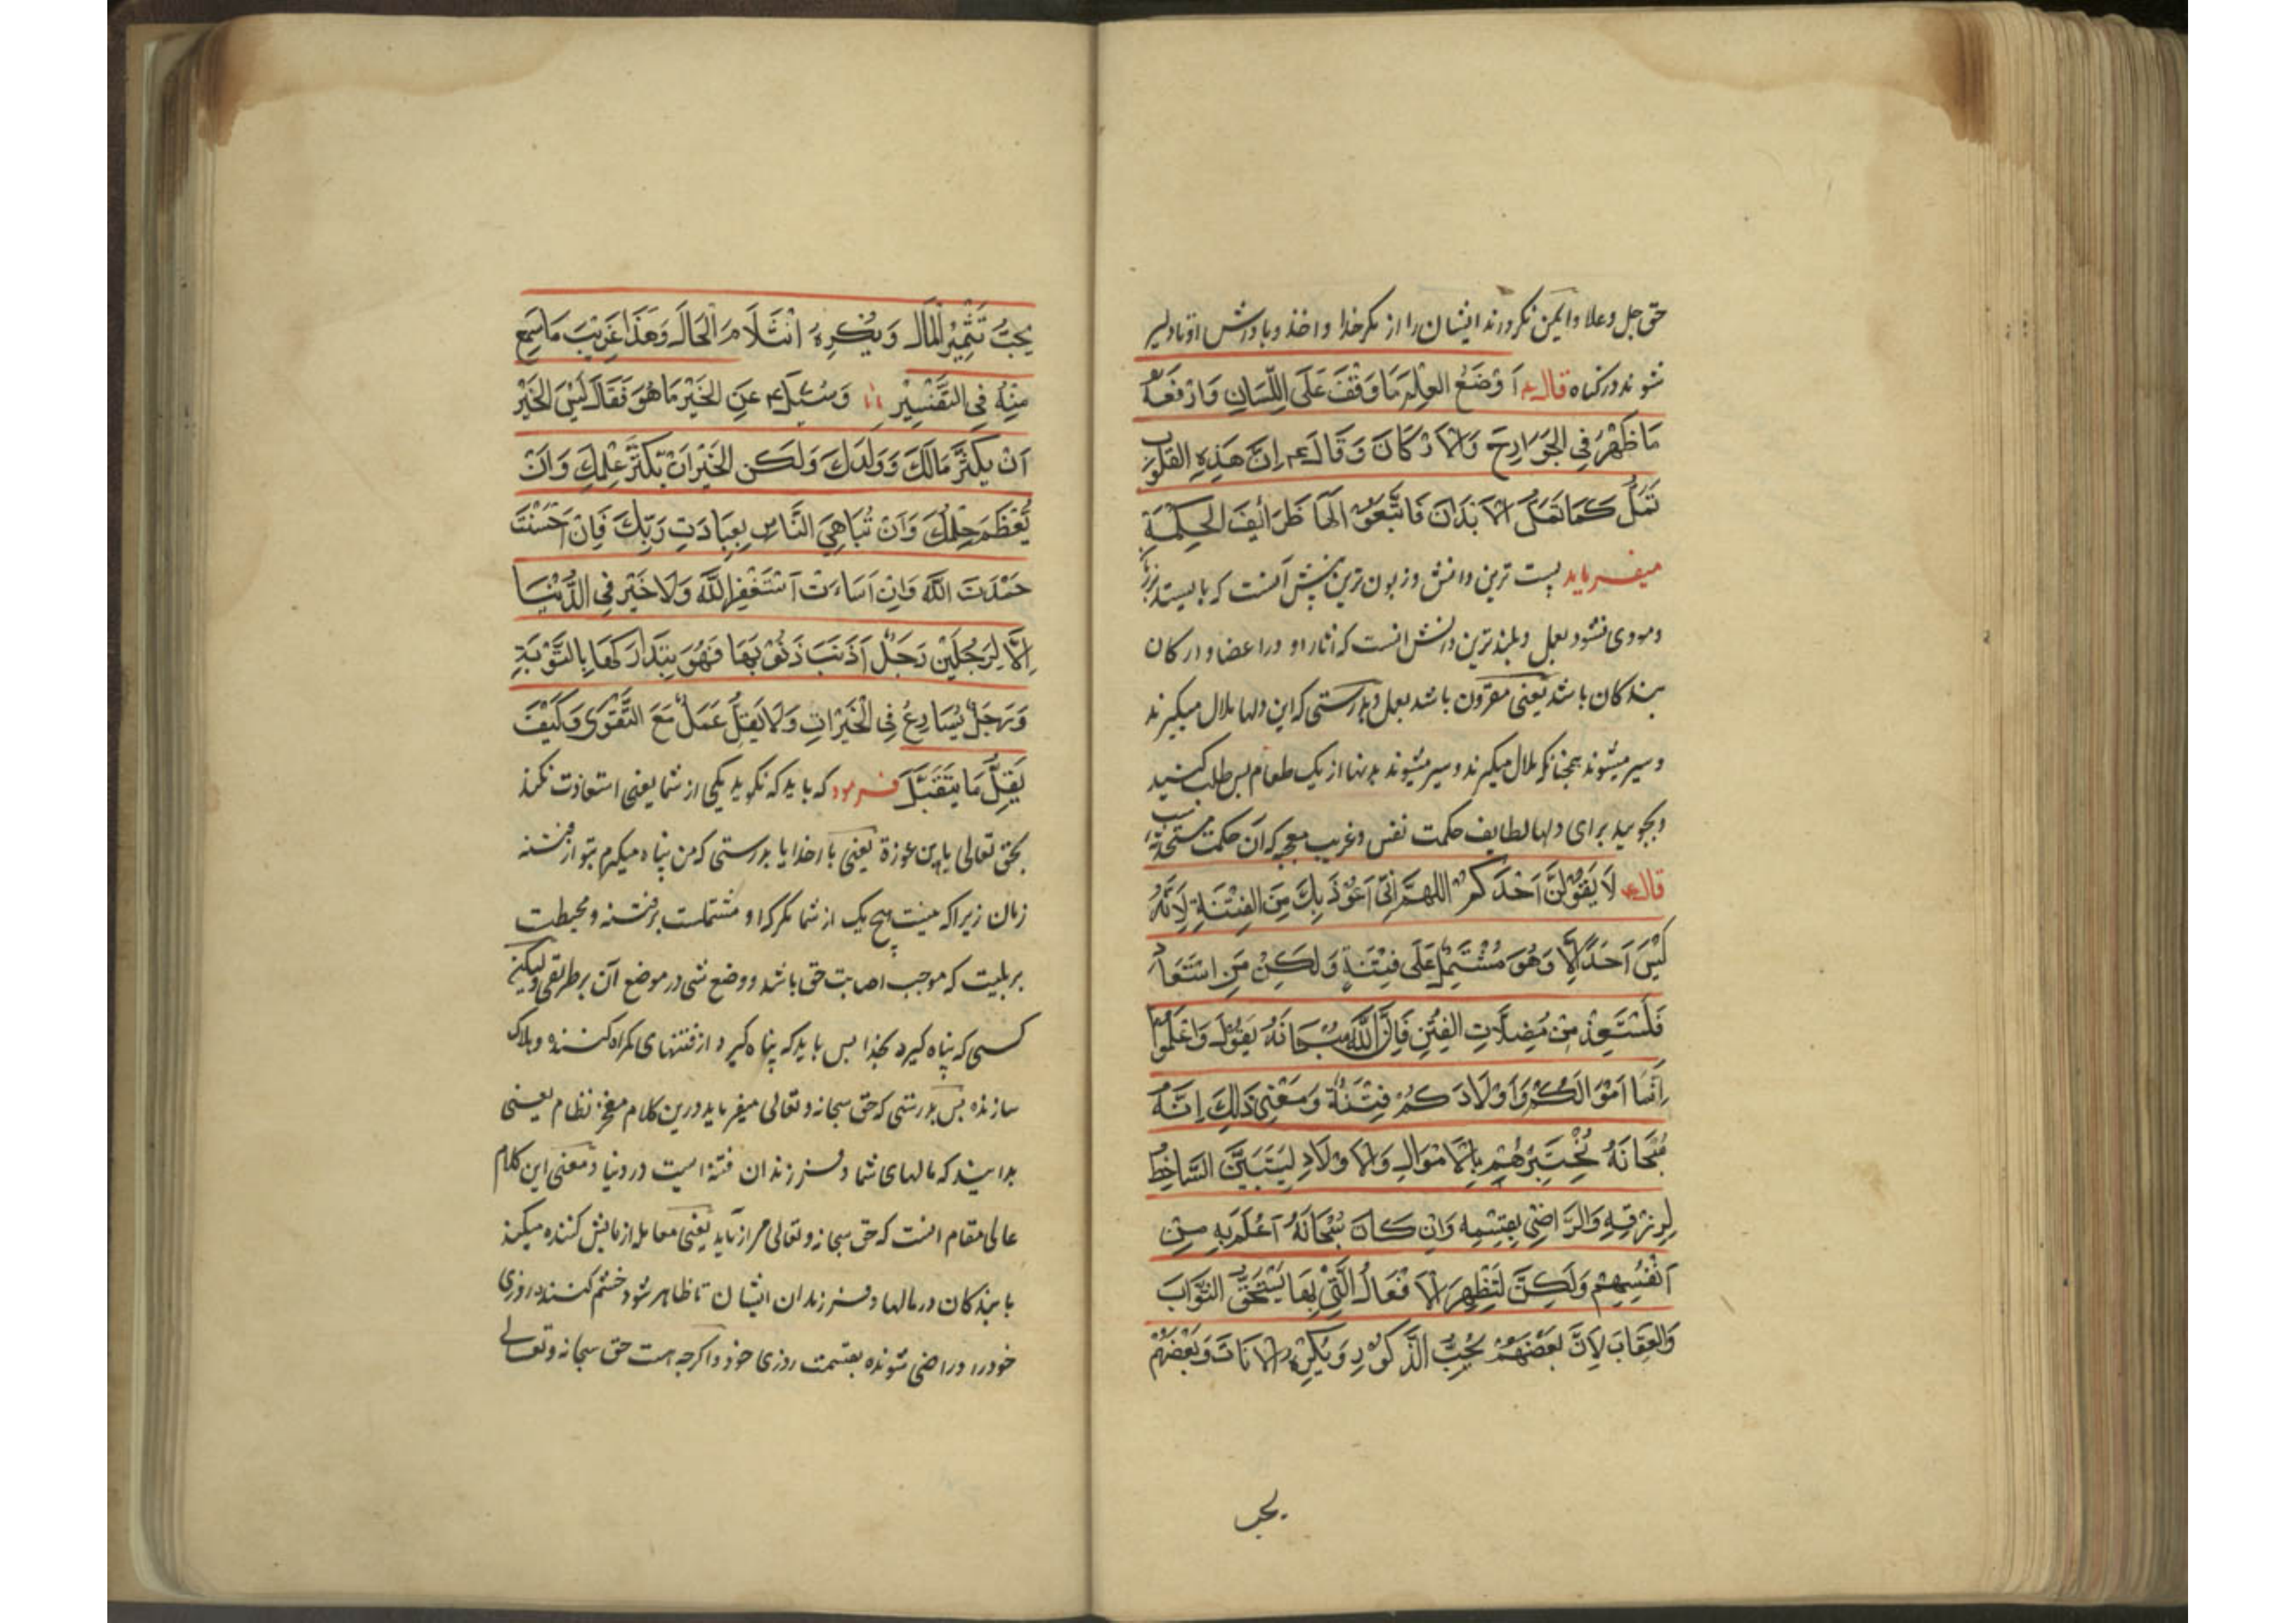 حق جل وعلا وایمن نکرداند ایشان را از مکر خدا واخذ وپاداش او تا دلیر
شوند در کناه قال ع اَوْضَعُ العِلْمِ مَا وَقَفَ عَلَی اللِّسَانِ وَاَرْفَعُهُ
مَا ظَهَرَ فِی الجَوَارِحِ وَالاَرْکَانِ وَقَالَ ع اِنَّ هَذِهِ القُلُوبَ
تَمَلُّ کَمَا تَمَلُّ الاَبْدَانَ فَابْتَغُوا لَهَا طَرَائِفَ الحِکْمَةِ
میفرماید پست ترین دانش وزبون ترین بینش آنست که بایستد بر زبان
ومودی نشود بعمل وبلندترین دانش انست که اثار او در اعضا وارکان
بندکان باشد یعنی مقرون باشد بعمل وبدرستی که این دلها ملال میکیرند
وسیر میشوند همچنانکه ملال میکیرند وسیر میشوند بدنها از یک طعام پس طلب کنید
وبجویید برای دلها لطایف حکمت نفس وغریب معجبه که آن حکمت مستحدثه
قال ع لَا یَقُولَنَّ اَحَدُکُمْ اللهمَّ اِنِّی اَعُوْذُ بِكَ مِنَ الفِتْنَةِ لِاَنَّهُ
لَیْسَ اَحَدٌ اِلَّا وَهُوَ مُشْتَمِلٌ عَلَی فِتْنَةٍ وَلَکِنْ مَنِ اسْتَعَاذَ
فَلْیَسْتَعِذْ مِنْ مُضِلَّاتِ الفِتَنِ فَاِنَّ اللّٰهَ سُبْحَانَهُ یَقُوْلُ وَاعْلَمُوْا
اَنَّمَا اَمْوَالُکُمْ وَاَوْلَادُکُمْ فِتْنَةٌ وَمَعْنِیَ ذَلِكَ اِنَّهُ
سُبْحَانَهُ یَخْتَبِرُهُمْ بِالْاَمْوَالِ وَالْاَوْلَادِ لِیَتَبَیَّنَ السَّاخِطُ
لِرِزْقِهِ وَالرَّاضِیَ بِقِسْمِهِ وَاِنْ کَانَ سُبْحَانَهُ اَعْلَمَ بِهِ مِنْ
اَنْفُسِهِمْ وَلَکِنْ لِتَظْهَرَ الْاَفْعَالُ الَّتِیْ بِهَا یَسْتَحَقُّ الثَّوَابَ
وَالعِقَابَ لِاَنَّ بَعْضَهُمْ یُحِبُّ الذُّکُوْرَ وَیَکْرَهُ الْاِنَاثَ وَبَعْضُهُمْ
یحب
یُحِبُّ تَثْمِیْرَ الْمَالِ وَیُکْرِهُ انْثِلَامَ الْحَالِ وَهَذَا غَرِیْبُ مَا سَمِعَ
مِنْهُ فِی التَّفْسِیْرِ وَسُئِلَ ع عَنِ الخَیْرِ مَا هُوَ فَقَالَ لَیْسَ الخَیْرُ
اَنْ یَکْثُرَ مَالُكَ وَوَلَدُكَ وَلَکِنَّ الخَیْرَ اَنْ یَکْثُرَ عِلْمُكَ وَاَنْ
یُعْظَمَ حِلْمُكَ وَاَنْ تُبَاهِیَ النَّاسَ بِعِبَادَتِ رَبِّكَ فَاِنْ اَحْسَنْتَ
حَمِدْتَ اللّٰهَ وَاِنْ اَسَاءتَ اسْتَغْفِرِ اللّٰهَ وَلَا خَیْرَ فِی الدُّنْیَا
اِلَّا لِرَجُلَیْنِ رَجُلٌ اَذْنَبَ ذُنُوْبًا فَهُوَ یَتَدَارَکُهَا بِالتَّوْبَةِ
وَرَجُلٌ یُسَارِعُ فِی الْخَیْرَاتِ وَلَا یَقِلُّ عَمَلٌ مَعَ التَّقْوَی وَکَیْفَ
یَقِلُّ مَا یُتَقَبَّلُ فرمود که باید که نکوید یکی از شما یعنی استعاذت نکند
بحق تعالی باین عوزة یعنی بار خدایا بدرستی که من پناه میکیرم بتو از فتنه
زمان زیرا که نیست هیچ یک از شما مکر که او مشتملست بر فتنه ومحیطست
بر بلیت که موجب اصابت حق باشد ووضع شی در موضع آن بر طریقی ولیکن
کسی که پناه کیرد بخدا پس باید که پناه کیرد از فتنهای کمراه کننده وهلاک
سازنده پس بدرستی که حق سبحانه وتعالی میفرماید درین کلام معجز نظام یعنی
بدانید که مالهای شما وفرزندان فتنه است در دنیا ومعنی این کلام
عالی مقام انست که حق سبحانه وتعالی می ازماید یعنی معامله ازمایش کننده میکند
با بندکان در مالها وفرزندان ایشان تا ظاهر شود خشم کننده روزی
خود را وراضی شونده بقسمت روزی خود واکرچه هست حق سبحانه وتعالی